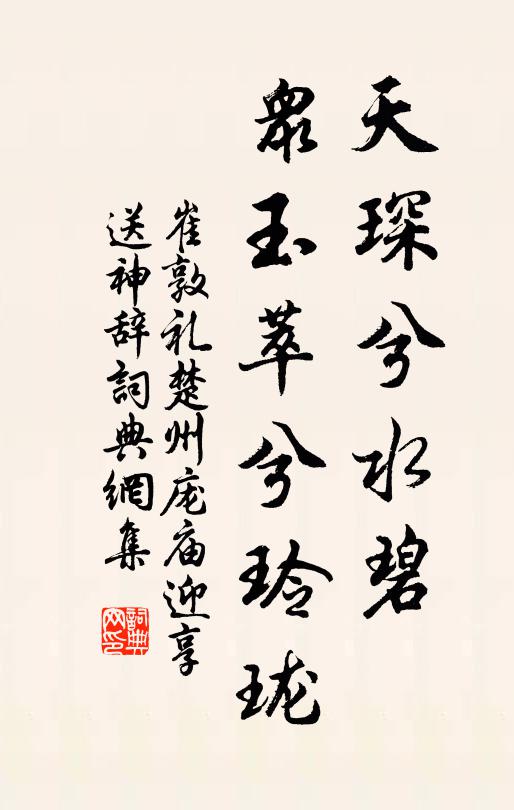 天琛兮水碧
眾玉萃兮玲珑
崔敦礼楚州庞庙迎享
送神辞詞典網集
詞典
网印